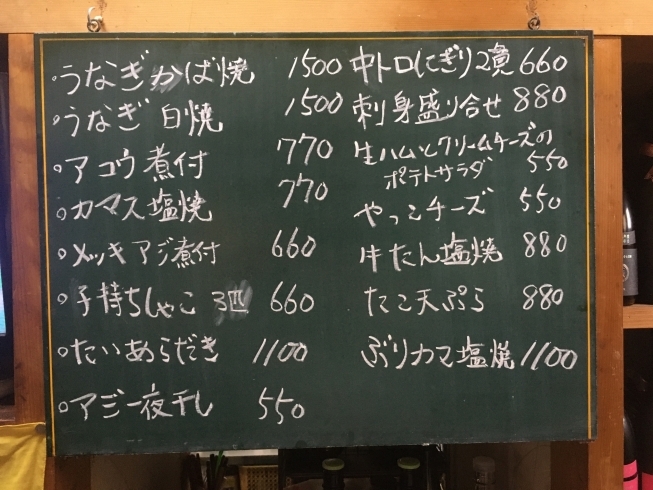 ○うなぎかば焼 1500
○うなぎ白焼 1500
○アコウ煮付 770
○カマス塩焼 770
○メッキアジ煮付 660
○子持ちしゃこ 3匹 660
○たいあらだき 1100
○アジ一夜干し 550
中トロにぎり2貫 660
刺身盛り合せ 880
生ハムとクリームチーズの
ポテトサラダ 550
やっこチーズ 550
牛たん塩焼 880
たこ天ぷら 880
ぶりカマ塩焼 1100